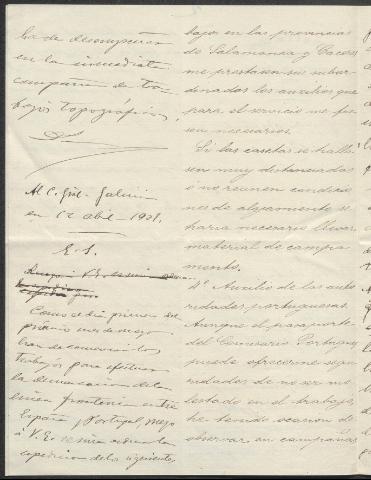 ha de desempeñar
en la inmediata
campaña de tra-
bajos topográficos.
Al C. Gral. Galicia
en 12 abril - 1901.
E. S.
Ruego á V. E.
Como el dia primero del
próximo mes de mayo
han de comenzar los
trabajos para efectuar
la demarcacion de la
linea fronteriza entre
España y Portugal, ruego
á V. E. se sirva ordenar la
expedicion de los siguientes
bajos en las provincias
de Salamanca y Caceres
me prestasen sus subor-
dinados los auxilios que
para el servicio me fue-
sen necesarios.
Si las casetas se halla-
sen muy distanciadas
ó no reunen condicio-
nes de alojamiento se
haria necesario llevar
material de campa-
mento.
4º Auxilio de las auto-
ridades portuguesas.
Aunque el
del Comisario Portugues
puede ofrecerme segu-
ridades de no ser mo-
lestado en el trabajo,
he tenido ocasion de
observar en campañas